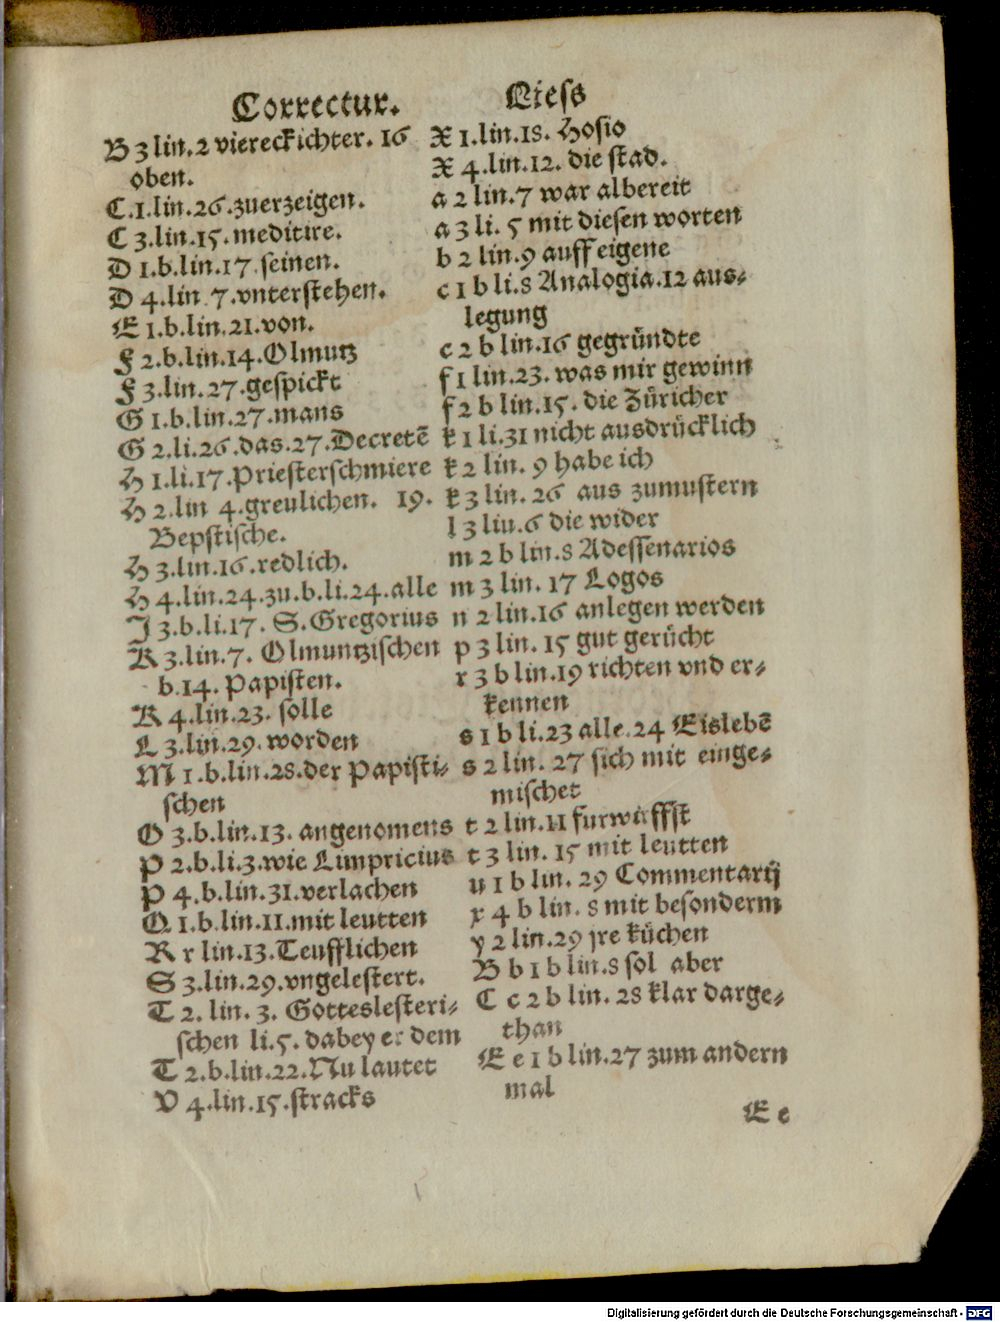 Correctur.
B 3 lin. 2 viereckichter. 16
oben.
C. 1. lin. 26. zuerzeigen.
C 3. lin. 15. meditire.
D 1. b. lin. 17. seinen.
D 4. lin. 7. vnterstehen.
E 1. b. lin. 21. von.
F 2. b. lin. 14. Olmutz
F 3. lin. 27. gespickt
G 1. b. lin. 27. mans
G 2. li. 26. das. 27. Decretē
H 1. li. 17. Priesterschmiere
H 2. lin 4. greulichen. 19.
Bepstische.
H 3. lin. 16. redlich.
H 4. lin. 24. zu. b. li. 24. alle
J 3. b. li. 17. S. Gregorius
K 3. lin. 7. Olmuntzischen
b. 14. Papisten.
K 4. lin. 23. solle
L 3. lin. 29. worden
M 1. b. lin. 28. der Papisti-
schen
O 3. b. lin. 13. angenomens
P 2. b. li. 3. wie Limpricius
P 4. b. lin. 31. verlachen
Q 1. b. lin. 11. mit leutten
R r lin. 13. Teufflichen
S 3. lin. 29. vngelestert.
T 2. lin. 3. Gotteslesteri-
schen li. 5. dabey er dem
T 2. b. lin. 22. Nu lautet
V 4. lin. 15. stracks
Liess
X 1. lin. 18. Hosio
X 4. lin. 12. die stad.
a 2 lin. 7 war albereit
a 3 li. 5 mit diesen worten
b 2 lin. 9 auff eigene
c 1 b li. 8 Analogia. 12 aus-
legung
c 2 b lin. 16 gegründte
f 1 lin. 23. was mir gewinn
f 2 b lin. 15. die Züricher
k 1 li. 31 nicht ausdrücklich
k 2 lin. 9 habe ich
k 3 lin. 26 aus zumustern
l 3 liu. 6 die wider
m 2 b lin. 8 Adessenarios
m 3 lin. 17 Logos
n 2 lin. 16 anlegen werden
p 3 lin. 15 gut gerücht
r 3 b lin. 19 richten vnd er-
kennen
s 1 b li. 23 alle. 24 Eislebē
s 2 lin. 27 sich mit einge-
mischet
t 2 lin. 11 furwüffst
t 3 lin. 15 mit leutten
u 1 b lin. 29 Commentarij
x 4 b lin. 8 mit besonderm
y 2 lin. 29 jre küchen
B b 1 b lin. 8 sol aber
C c 2 b lin. 28 klar darge-
than
E e 1 b lin. 27 zum andern
mal
E e
Digitalisierung gefördert durch die Deutsche Forschungsgemeinschaft - DFG